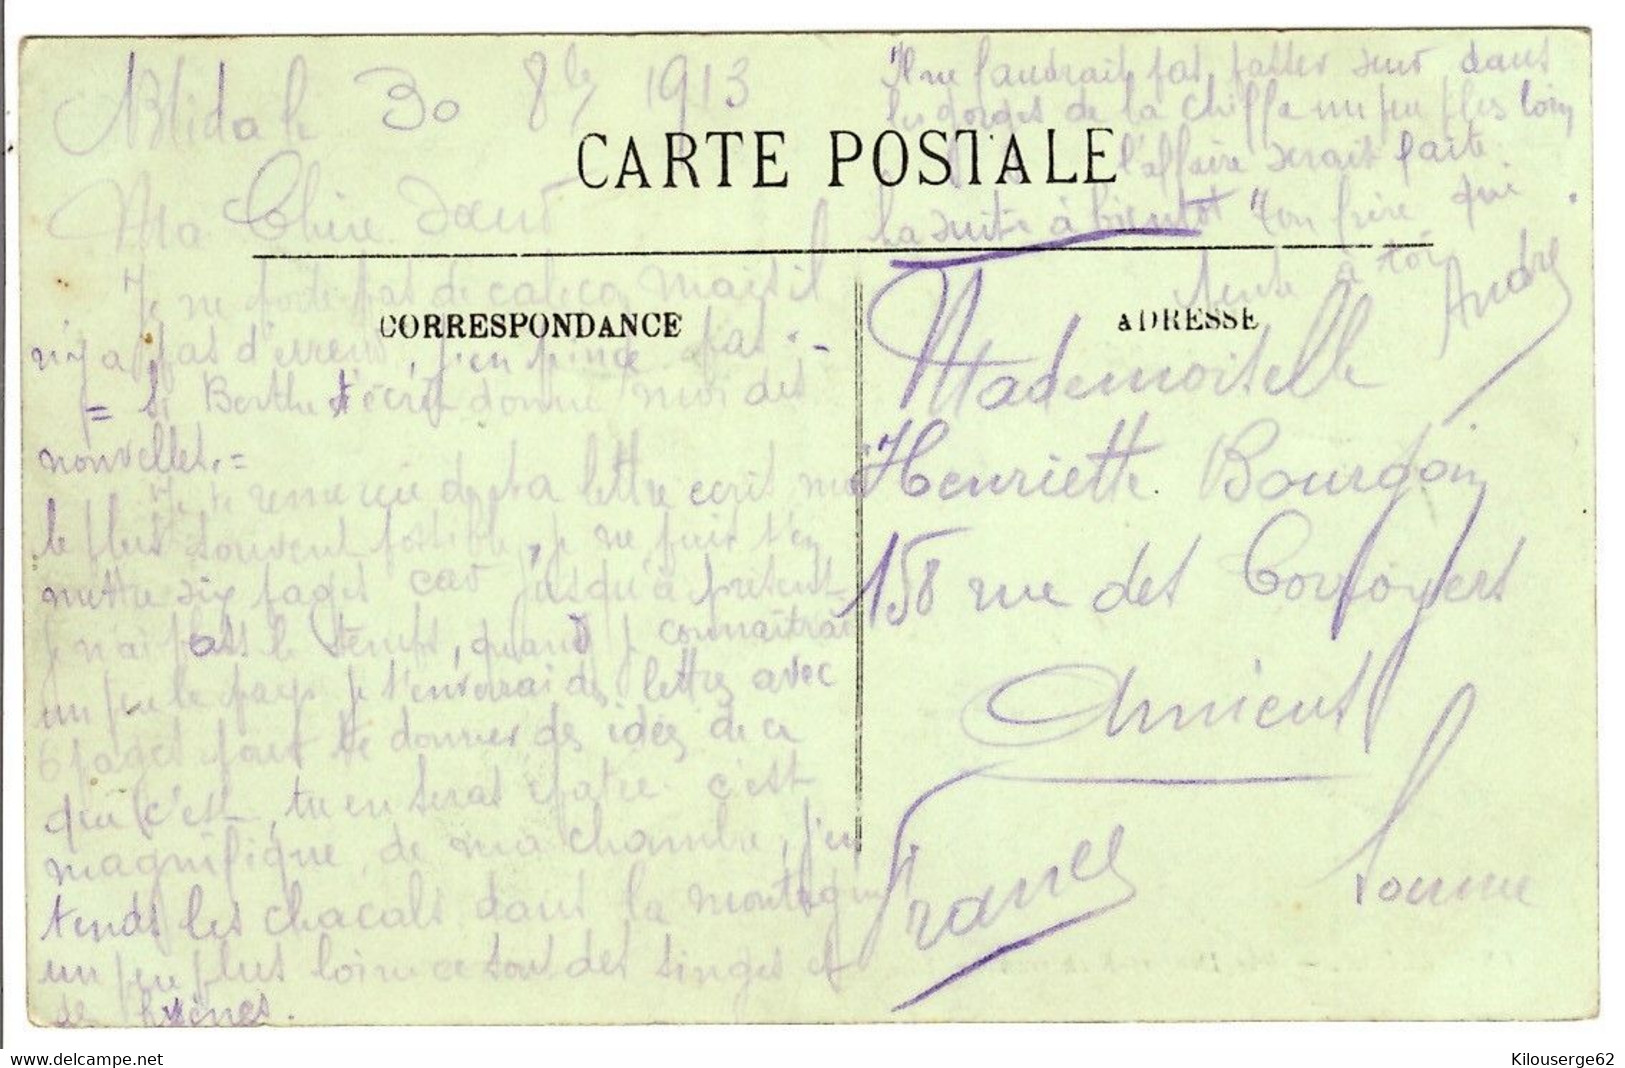 Blida le 30 8bre 1913
Ma Chère Sœur
Je ne porte pas de caleçon mais il
n'y a pas d'erreur, j'en pince pas.-
= Si Berthe t'écrit donne moi des
nouvelles.=
Je te remercie de ta lettre écrit moi
le plus souvent possible, je ne puis t'en
mettre six pages car jusqu'à présent
je n'ai pas le temps, quand je connaîtrai
un peu le pays je t'enverrai des lettres avec
6 pages pour te donner des idées de ce
que c'est, tu en seras épatée. c'est
magnifique de ma chambre, j'en
tends les chacals dans la montagne
un peu plus loin ce sont des singes et
des hyènes.
Il ne faudrait pas passer seul dans
les gorges de la Chiffa un peu plus loin
l'affaire serait faite.
La suite à bientôt Ton frère qui
à toi
André
CARTE POSTALE
CORRESPONDANCE
ADRESSE
Mademoiselle
Henriette Bourgoin
158 rue des Corroyers
Amiens
Somme
France
www.delcampe.net
Kilouserge62